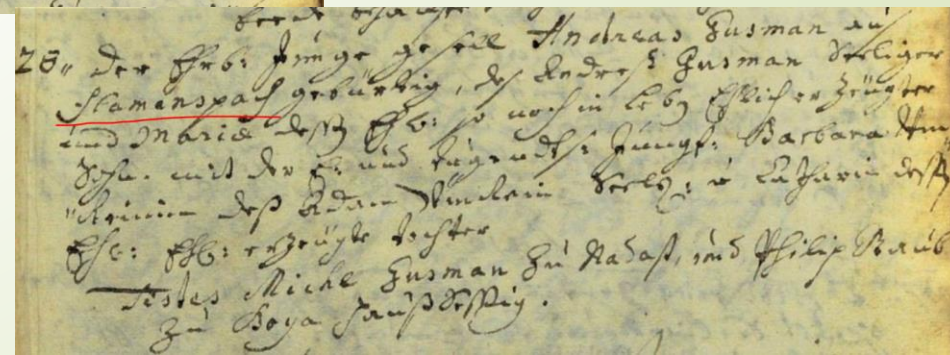 beede
28 der Ehrb: Junge gesell Andreas Husman auß
Flamanspach gebürtig, deß Andreß Husman Seeliger
und Maria dessen Ehw: so noch in leben Ehlich erzeugter
Sohn. mit der E: und tugendts: Jungf: Barbara
deß Adam Seel: Catharin dessen
Ehw: erzeugte tochter
Testes Michl Husman zu Nadast, und Philip
zu Boya haußsessig.